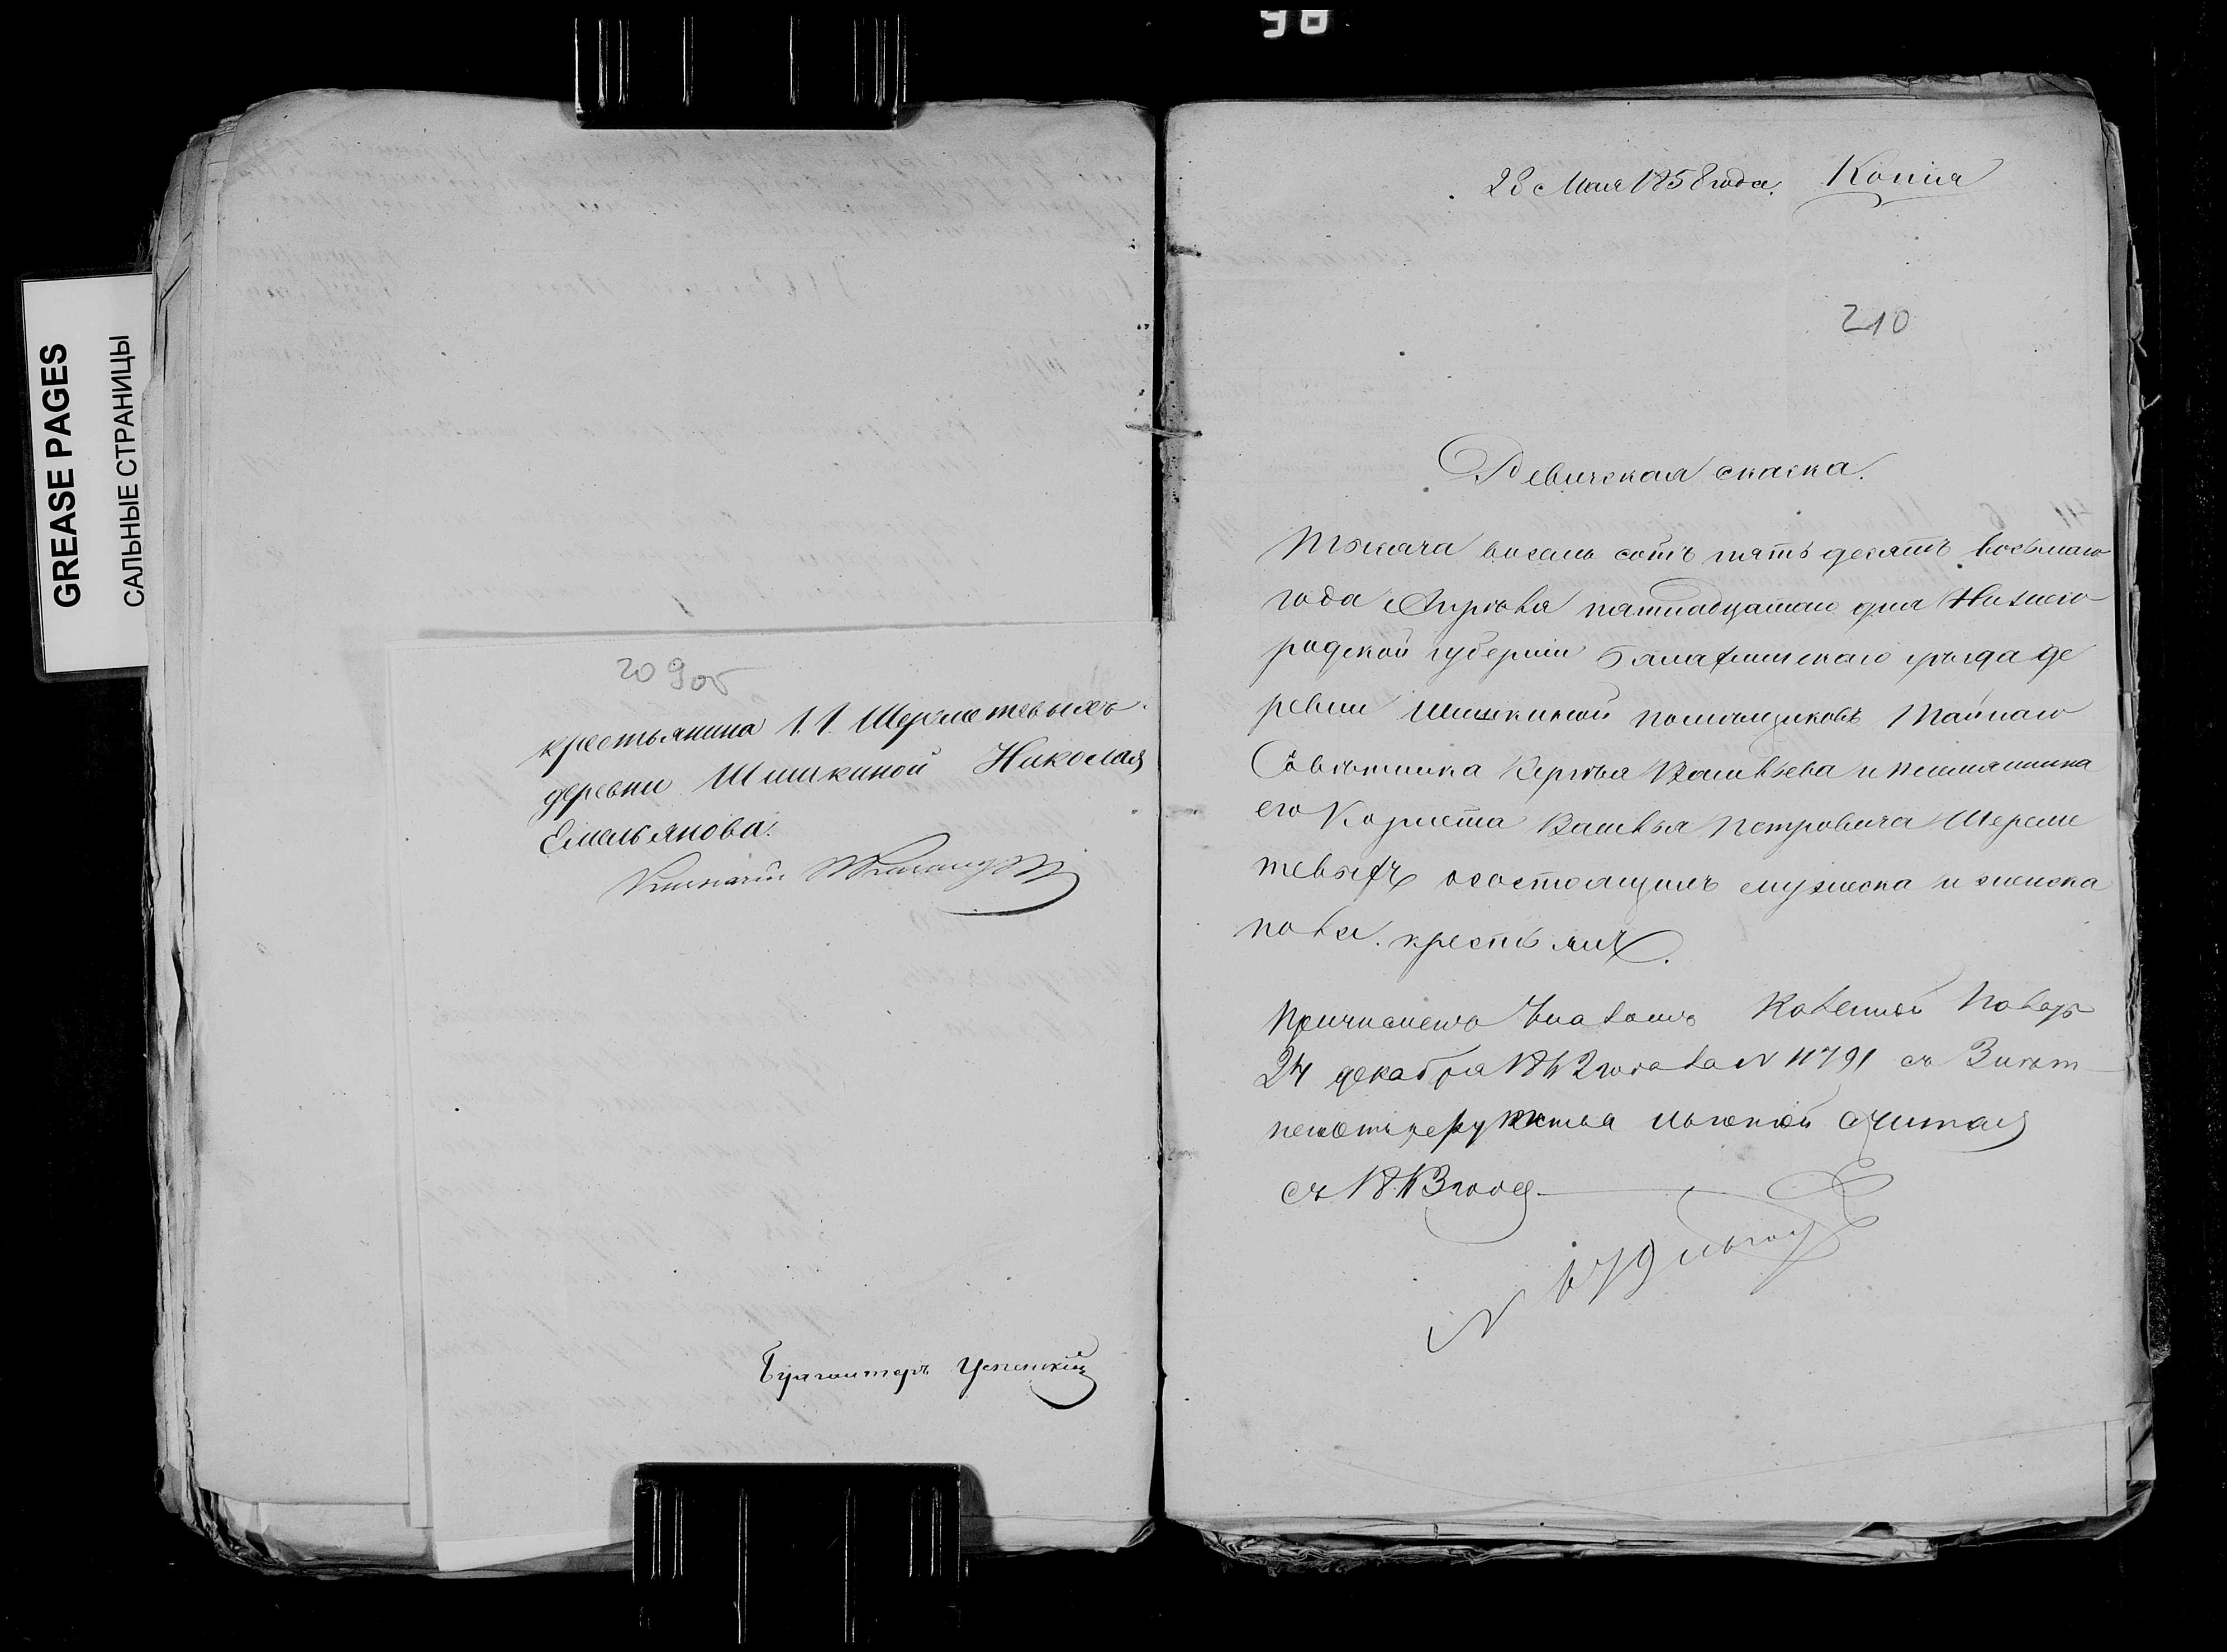 98
GREASE PAGES
САЛЬНЫЕ СТРАНИЦЫ
209об
крестьянина Г.Г. Шереметевыхъ
деревни Шишкиной Николая
Емельянова.
Бухгалтеръ Успенскій
28 Мая 1858 года. Копія
210
Ревизская сказка.
Тысяча восемь сотъ пять десятъ восьмаго
года Апреля пятнадцатаго дня Нижего
родской губерніи Балахнинскаго уезда де
ревни Шишкиной помещиковъ Тайнаго
Советника Сергея Васильева и племянника
его Корнета Василья Петровича Шереме
тевыхъ осостоящихъ мужеска и женска
пола крестьянъ.
Причислено Указомъ Казенной Палаты
24 декабря 18 2 года за N 11791 съ
считая
съ 18 3 года
N